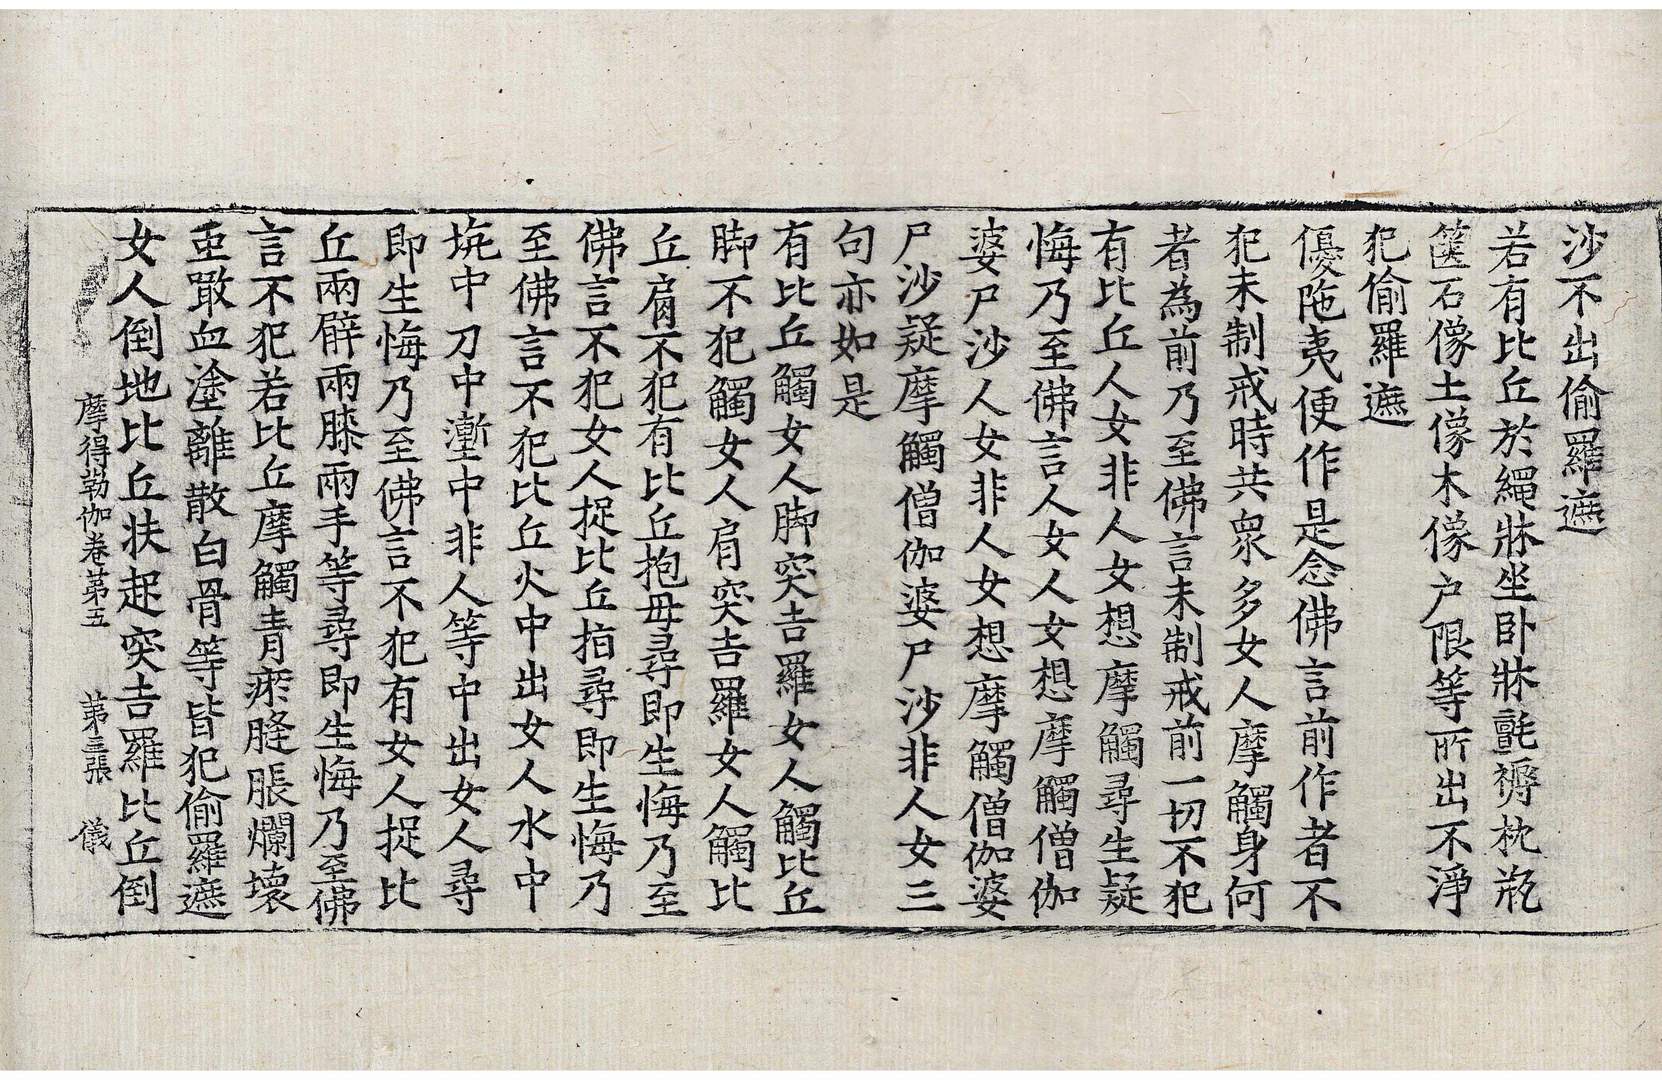 沙不出偷羅遮
若有比丘於繩牀坐卧牀氈褥枕瓶
篋石像土像木像户限等所出不淨
犯偷羅遮
優陁夷便作是念佛言前作者不
犯未制戒時共衆多女人摩觸身何
者為前乃至佛言未制戒前一切不犯
有比丘人女非人女想摩觸尋生疑
悔乃至佛言人女人女想摩觸僧伽
婆尸沙人女非人女想摩觸僧伽婆
尸沙疑摩觸僧伽婆尸沙非人女三
句亦如是
有比丘觸女人脚突吉羅女人觸比丘
脚不犯觸女人肩突吉羅女人觸比
丘肩不犯有比丘抱母尋即生悔乃至
佛言不犯女人捉比丘拍尋即生悔乃
至佛言不犯比丘火中出女人水中
坑中刀中塹中非人等中出女人尋
即生悔乃至佛言不犯有女人捉比
丘兩臂兩膝兩手等尋即生悔乃至佛
言不犯若比丘摩觸青瘀膖脹爛壞
虫噉血塗離散白骨等皆犯偷羅遮
女人倒地比丘扶起突吉羅比丘倒
摩得勒伽卷第五 第三張 儀